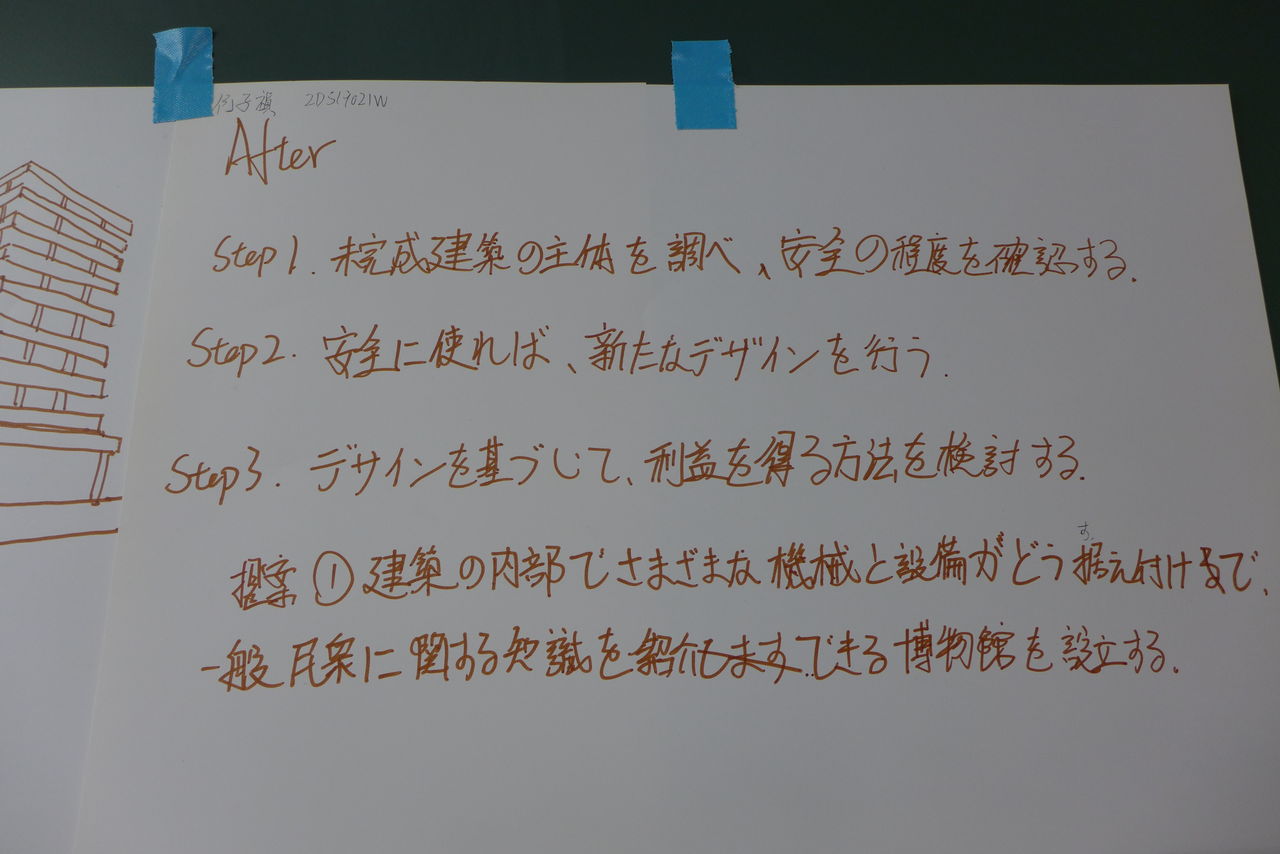 何子旗 2DS19021W
After
Step1. 未完成建築の主体を調べ、安全の程度を確認する.
Step2. 安全に使れば、新たなデザインを行う.
Step3. デサインを基づじて、利益を得る方法を検討する.
す
提案 ① 建築の内部でさまざまな機械と設備がどう据え付けまで、
一般民衆に関する知識を紹介できる博物館を設立する.